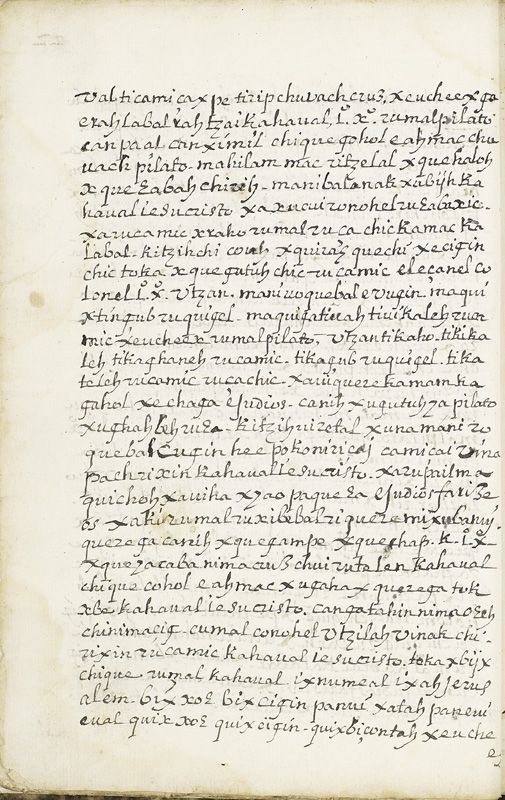 val ti camic ax pe tirip chuvach cruz, xeucheex ga
erah labal rah tzai kahaval, I. X. rumal pilato
can paal can ximil chique gohol eahmac chu
vach pilato - mahilam mac ritzelal xquehaloh
xque zabah chirih - manibalanak xubijh ka
haval iesucristo xaxucuironohel ruzabaxic -
xarucamic xrako rumal ruca chic kamac ka
labal - kitzihchi couh xquiraz quechi xecigin
chic toka xquegutuh chic rucamic elecanel co
lonel I. X. Utzan. mani voquebal evugin. maqui
xtingub ruquigel - maquigatiuah tiuikaleh ruca
mic xeucheex rumal pilato, Utzan tikaho - tikika
leh tikaghaneh rucamic - tikagub ruquigel - tika
teleh rucamic rucachic - xauiquere kamam ka
gahol xechaga ejudios - canih xugutuh za pilato
xughahbeh ruza - kitzih uiretal xuna mani ro
quebal Cugin hee pokoniricaj camical Vina
pach rixin kahaval iesucristo. xarupailma
quichoh xauika xyao paqueza ejudios farise
os xaki rumal ruxibebal riquere mixubanuj
querega canih xquegampe xquechap. K. I. X
xquezacaba nima cruz chuirutelen kahaval
chique cohol eahmac xugaha x querega tok
xbe kahaval iesucristo. cangatahin nima ozeh
chinimacig - cumal conohel Utzilah Vinak chi-
rixin rucamic kahaval iesucristo. toka xbijx
chique rumal kahaval ixnumeal ixah jerus
alem. bix xoz bix cigin panui xatah panevi
eval quix xoz quix cigin - quixbiçontah xeuche
e